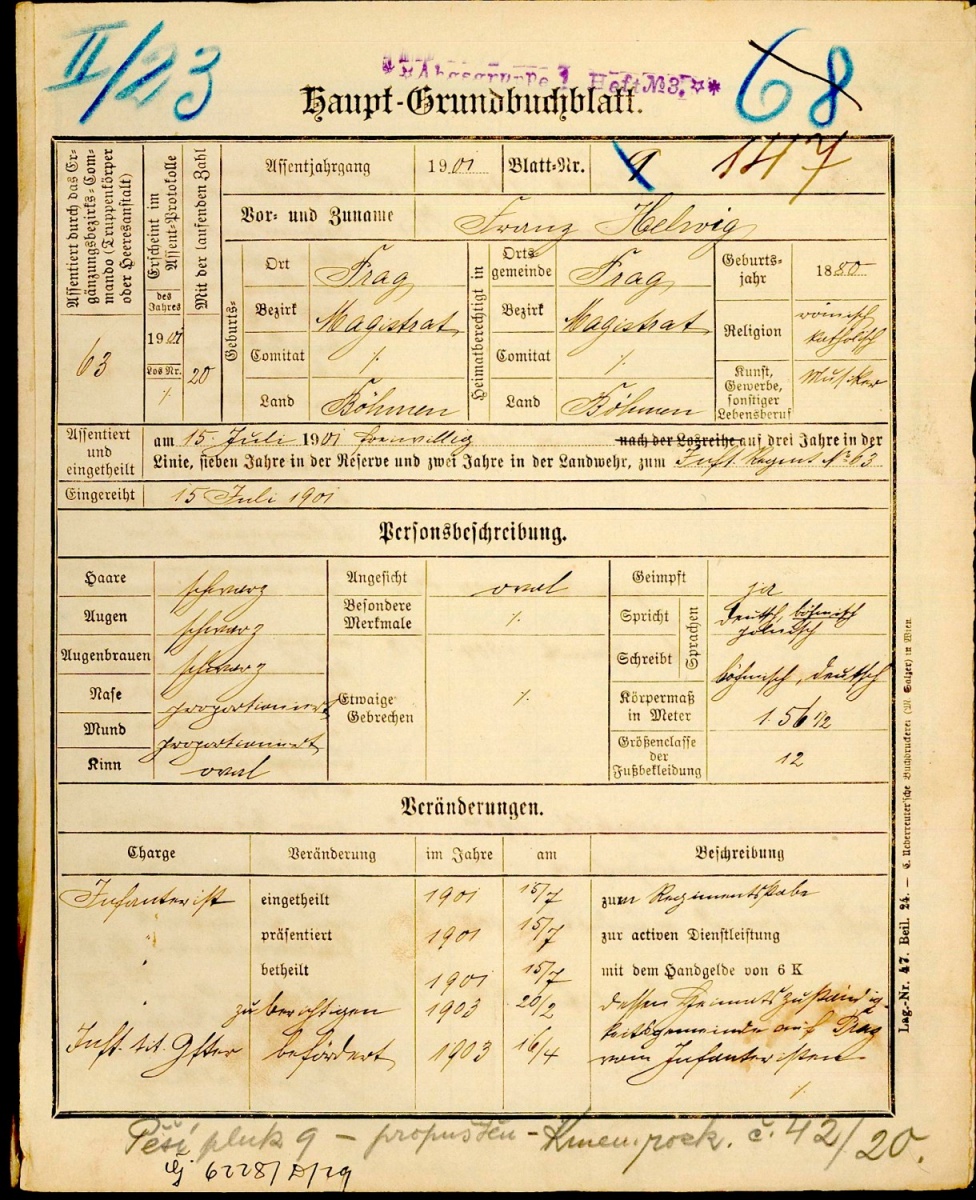 II/23
68
Abgsgruppe 1. Heft №3.
Haupt-Grundbuchblatt.
Assentiert durch das Ergänzungsbezirks-Commando (Truppenkörper oder Heeresanstalt)
63
Erscheint im Assent-Protokolle
des Jahres
1901
Los Nr.
⁒
Mit der laufenden Zahl
20
Assentjahrgang 1901 Blatt-Nr. 9 147
Vor- und Zuname Franz Helwig
Geburts-
Ort Prag
Bezirk Magistrat
Comitat ⁒
Land Böhmen
Heimatberechtigt in
Ortsgemeinde Prag
Bezirk Magistrat
Comitat ⁒
Land Böhmen
Geburtsjahr 1880
Religion römisch katholisch
Kunst, Gewerbe, sonstiger Lebensberuf Musiker
Assentiert und eingetheilt
am 15. Juli 1901 freiwillig nach der Losreihe auf drei Jahre in der
Linie, sieben Jahre in der Reserve und zwei Jahre in der Landwehr, zum Inft. Regmt № 63
Eingereiht 15 Juli 1901
Personsbeschreibung.
Haare schwarz
Augen schwarz
Augenbrauen schwarz
Nase proportioniert
Mund proportioniert
Kinn oval
Angesicht oval
Besondere Merkmale ⁒
Etwaige Gebrechen ⁒
Geimpft ja
Spricht Sprachen deutsch, böhmisch
polnisch
Schreibt böhmisch, deutsch
Körpermaß in Meter 1.56 1/2
Größenclasse der Fußbekleidung 12
Veränderungen.
Charge Veränderung im Jahre am Beschreibung
Infanterist eingetheilt 1901 15/7 zum Regimentsstabe
" präsentiert 1901 15/7 zur activen Dienstleistung
" betheilt 1901 15/7 mit dem Handgelde von 6 K
" zu berichtigen 1903 20/2 dessen Heimatszuständig-
keitsgemeinde auf Prag
Inft. tit. Gfter befördert 1903 16/4 vom Infanteristen
⁒
Pěší pluk 9 – propuštěn – Kmen. rozk. č. 42/20.
6228/D/26
Lag.-Nr. 47. Beil. 24. — C. Ueberreuter'sche Buchdruckerei (M. Salzer) in Wien.